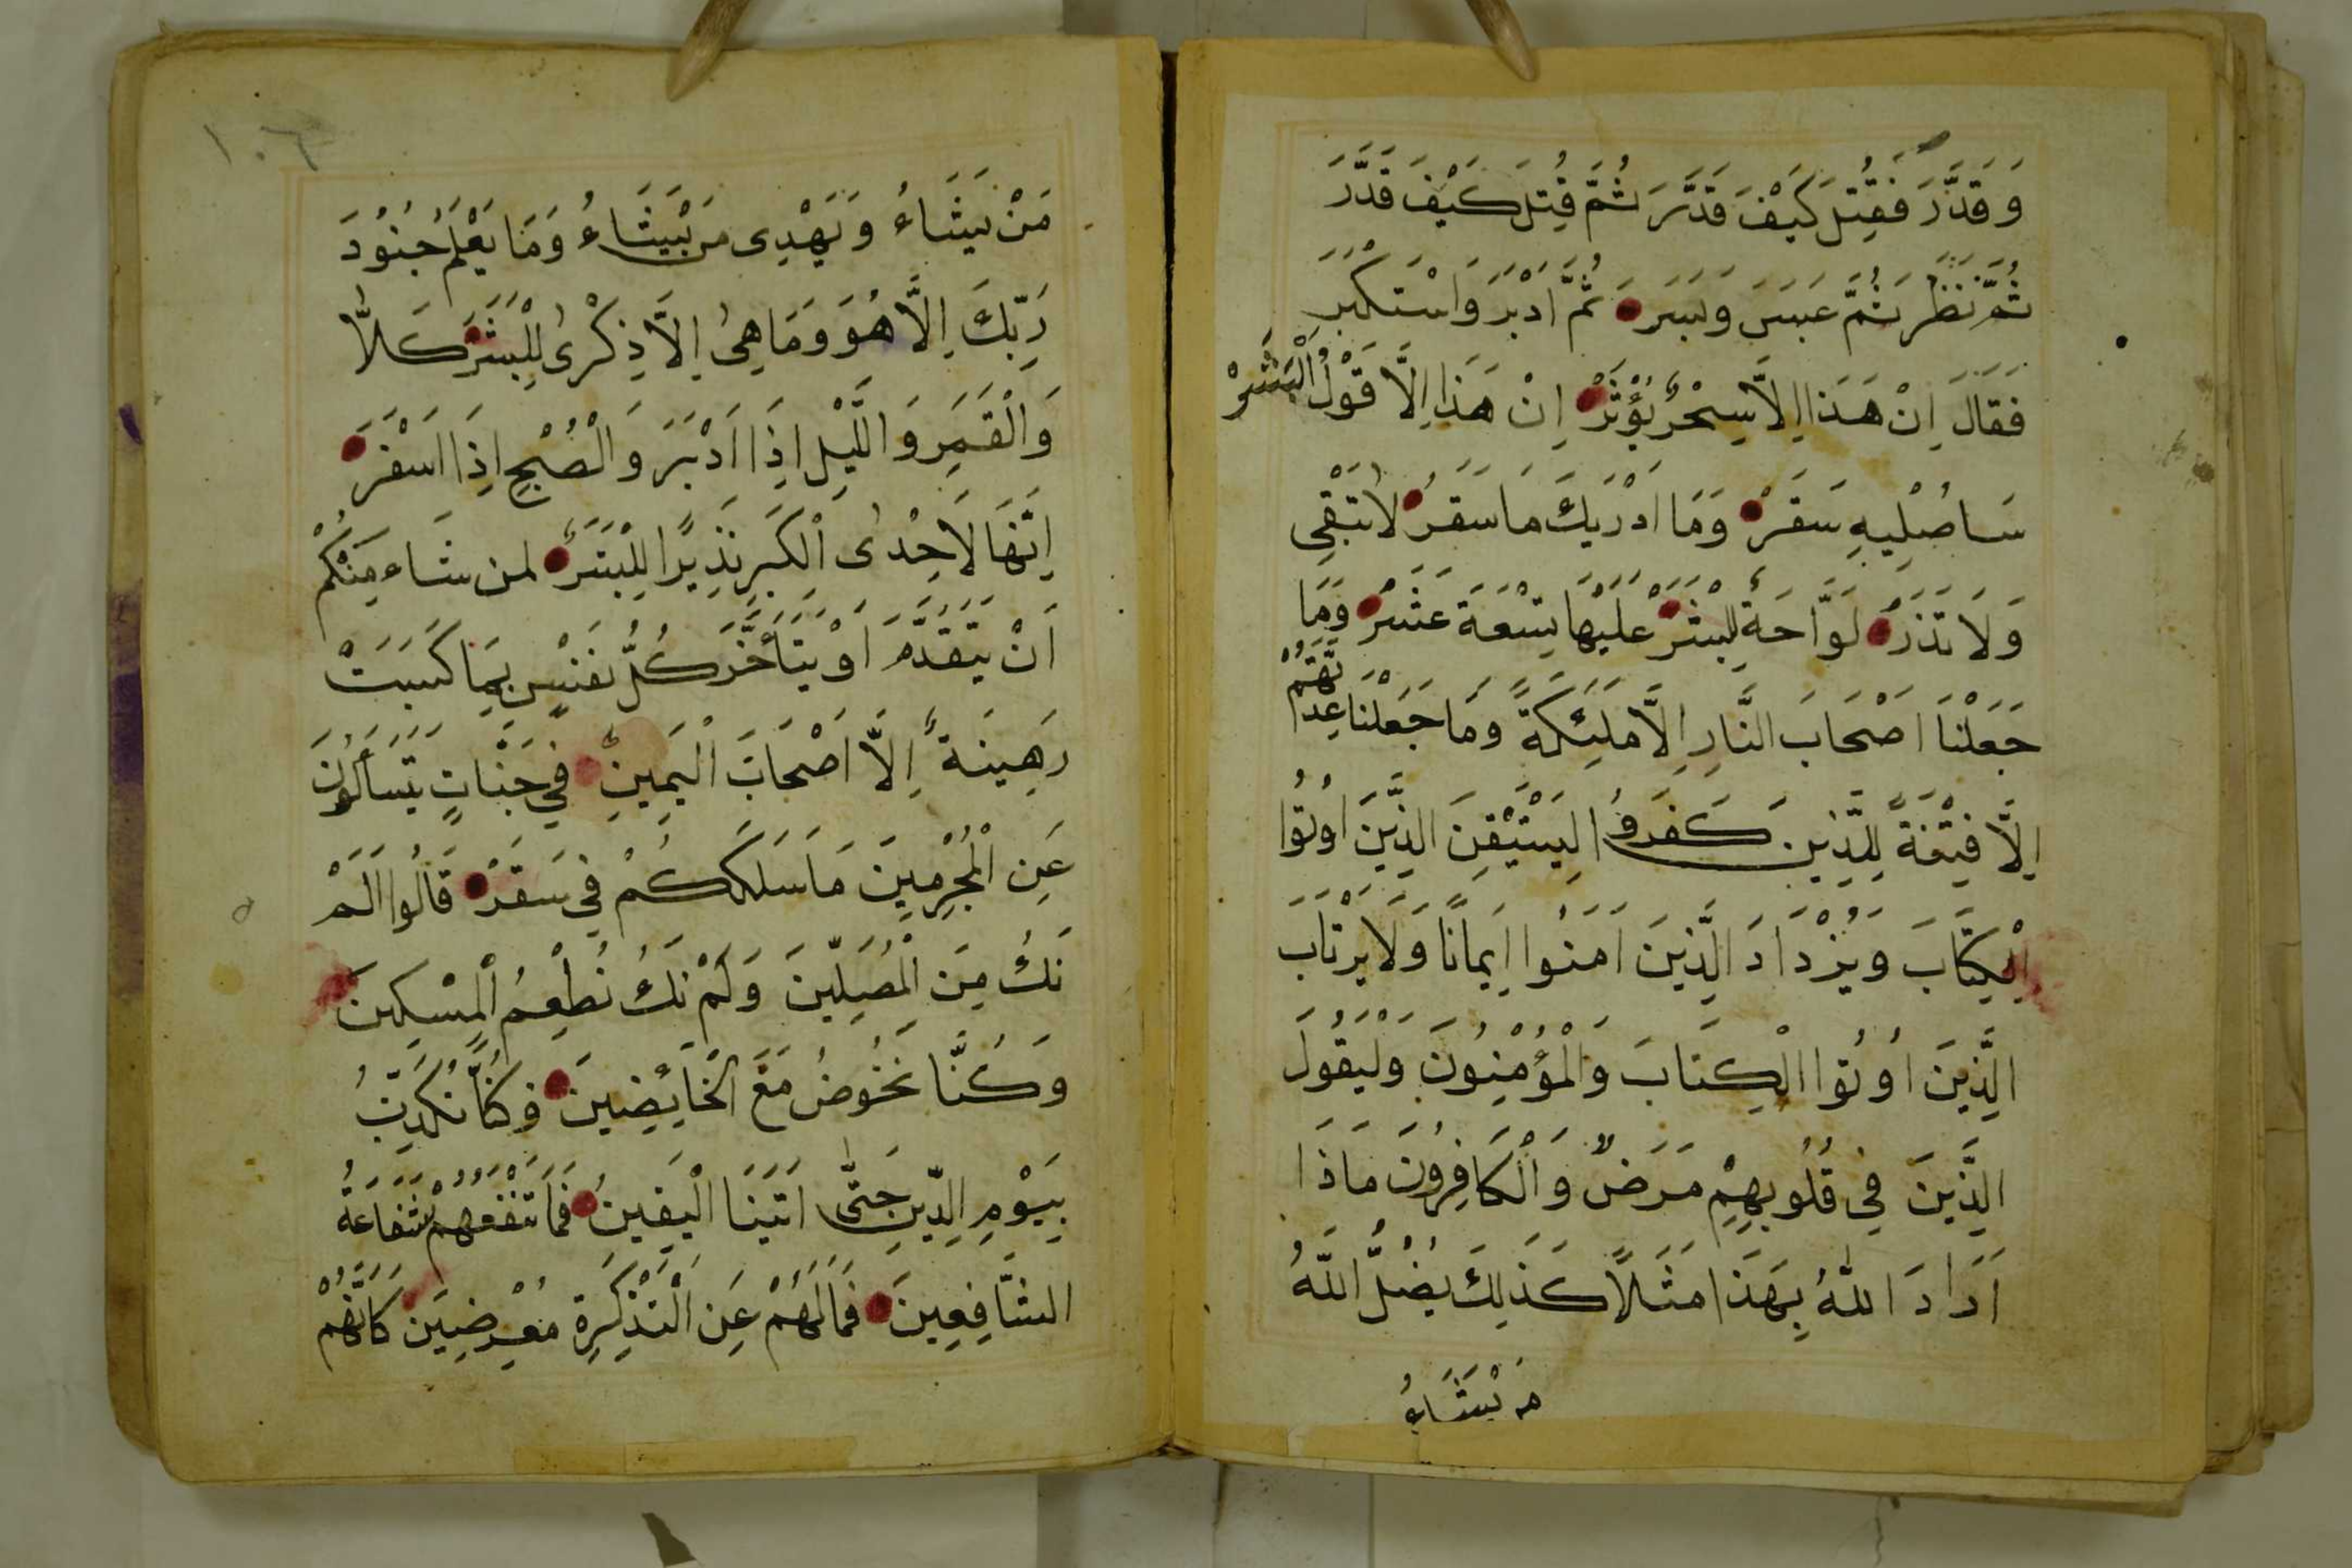 وَقَدَّرَ فَقُتِلَ كَيْفَ قَدَّرَ ثُمَّ قُتِلَ كَيْفَ قَدَّرَ
ثُمَّ نَظَرَ ثُمَّ عَبَسَ وَبَسَرَ ثُمَّ اَدْبَرَ وَاسْتَكْبَرَ
فَقَالَ اِنْ هَذَا اِلَّا سِحْرٌ يُؤْثَرْ اِنْ هَذَا اِلَّا قَوْلُ الْبَشَرْ
سَاصُلِيهِ سَقَرْ وَمَا اَدْرَيكَ مَا سَقَرُ لَا تُبْقِى
وَلَا تَذَرُ لَوَّاحَةٌ لِلْبَشَرْ عَلَيْهَا تِسْعَةَ عَشَرْ وَمَا
جَعَلْنَا اَصْحَابَ النَّارِ اِلَّا مَلَئِكَةً وَمَا جَعَلْنَا عِدَّتَهُمْ
اِلَّا فِتْنَةً لِلَّذِينَ كَفَرُوا لِيَسْتَيْقِنَ الَّذِينَ اُوتُوا
الْكِتَابَ وَيَزْدَادَ الَّذِينَ اَمَنُوا اِيمَانًا وَلَا يَرْتَابَ
الَّذِينَ اُوتُوا الْكِتَابَ وَالْمُؤْمِنُونَ وَلِيَقُولَ
الَّذِينَ فِي قُلُوبِهِمْ مَرَضٌ وَالْكَافِرُونَ مَاذَا
اَرَادَ اللّٰهُ بِهَذَا مَثَلًا كَذَلِكَ يُضِلُّ اللّٰهُ
مَنْ يَشَاءُ
١٠٦
مَنْ يَشَاءُ وَيَهْدِى مَنْ يَشَاءُ وَمَا يَعْلَمُ جُنُودَ
رَبِّكَ اِلَّا هُوَ وَمَا هِىَ اِلَّا ذِكْرٰى لِلْبَشَرْ كَلَّا
وَالْقَمَرِ وَالَّيْلِ اِذَا اَدْبَرَ وَالْصُبْحِ اِذَا اَسْفَرَ
اِنَّهَا لَاَحِدْىٰ الْكُبَرِ نَذِيرًا لِلْبَشَرَ لمن شَاء مِنْكُمْ
اَنْ يَتَقَدَّمَ اَوْ يَتَأَخَّرَ كُلُّ نَفَسٍ بِمَا كَسَبَتْ
رَهِينَةٌ اِلَّا اَصْحَابَ الْيَمِينِ فِي جَنَّاتٍ يَتَسَاَلُونَ
عَنِ الْمُجْرِمِينَ مَا سَلَكَكُمْ فِي سَقَرْ قَالُوا لَمْ
نَكُ مِنَ الْمُصَلِّينَ وَلَمْ نَكُ نُطْعِمُ الْمِسْكِينَ
وَكُنَّا نَخُوضُ مَعَ الْخَايِضِينَ وَكُنَّا نُكَذِّبُ
بِيَوْمِ الدِّينِ حَتَّىٰ اَتَينَا الْيَقِينُ فَمَا تَنْفَعُهُمْ شَفَاعَةُ
الشَّافِعِينَ فَمَا لَهُمْ عَنِ الْتَذْكِرَةِ مُعْرِضِينَ كَاَنَّهُمْ